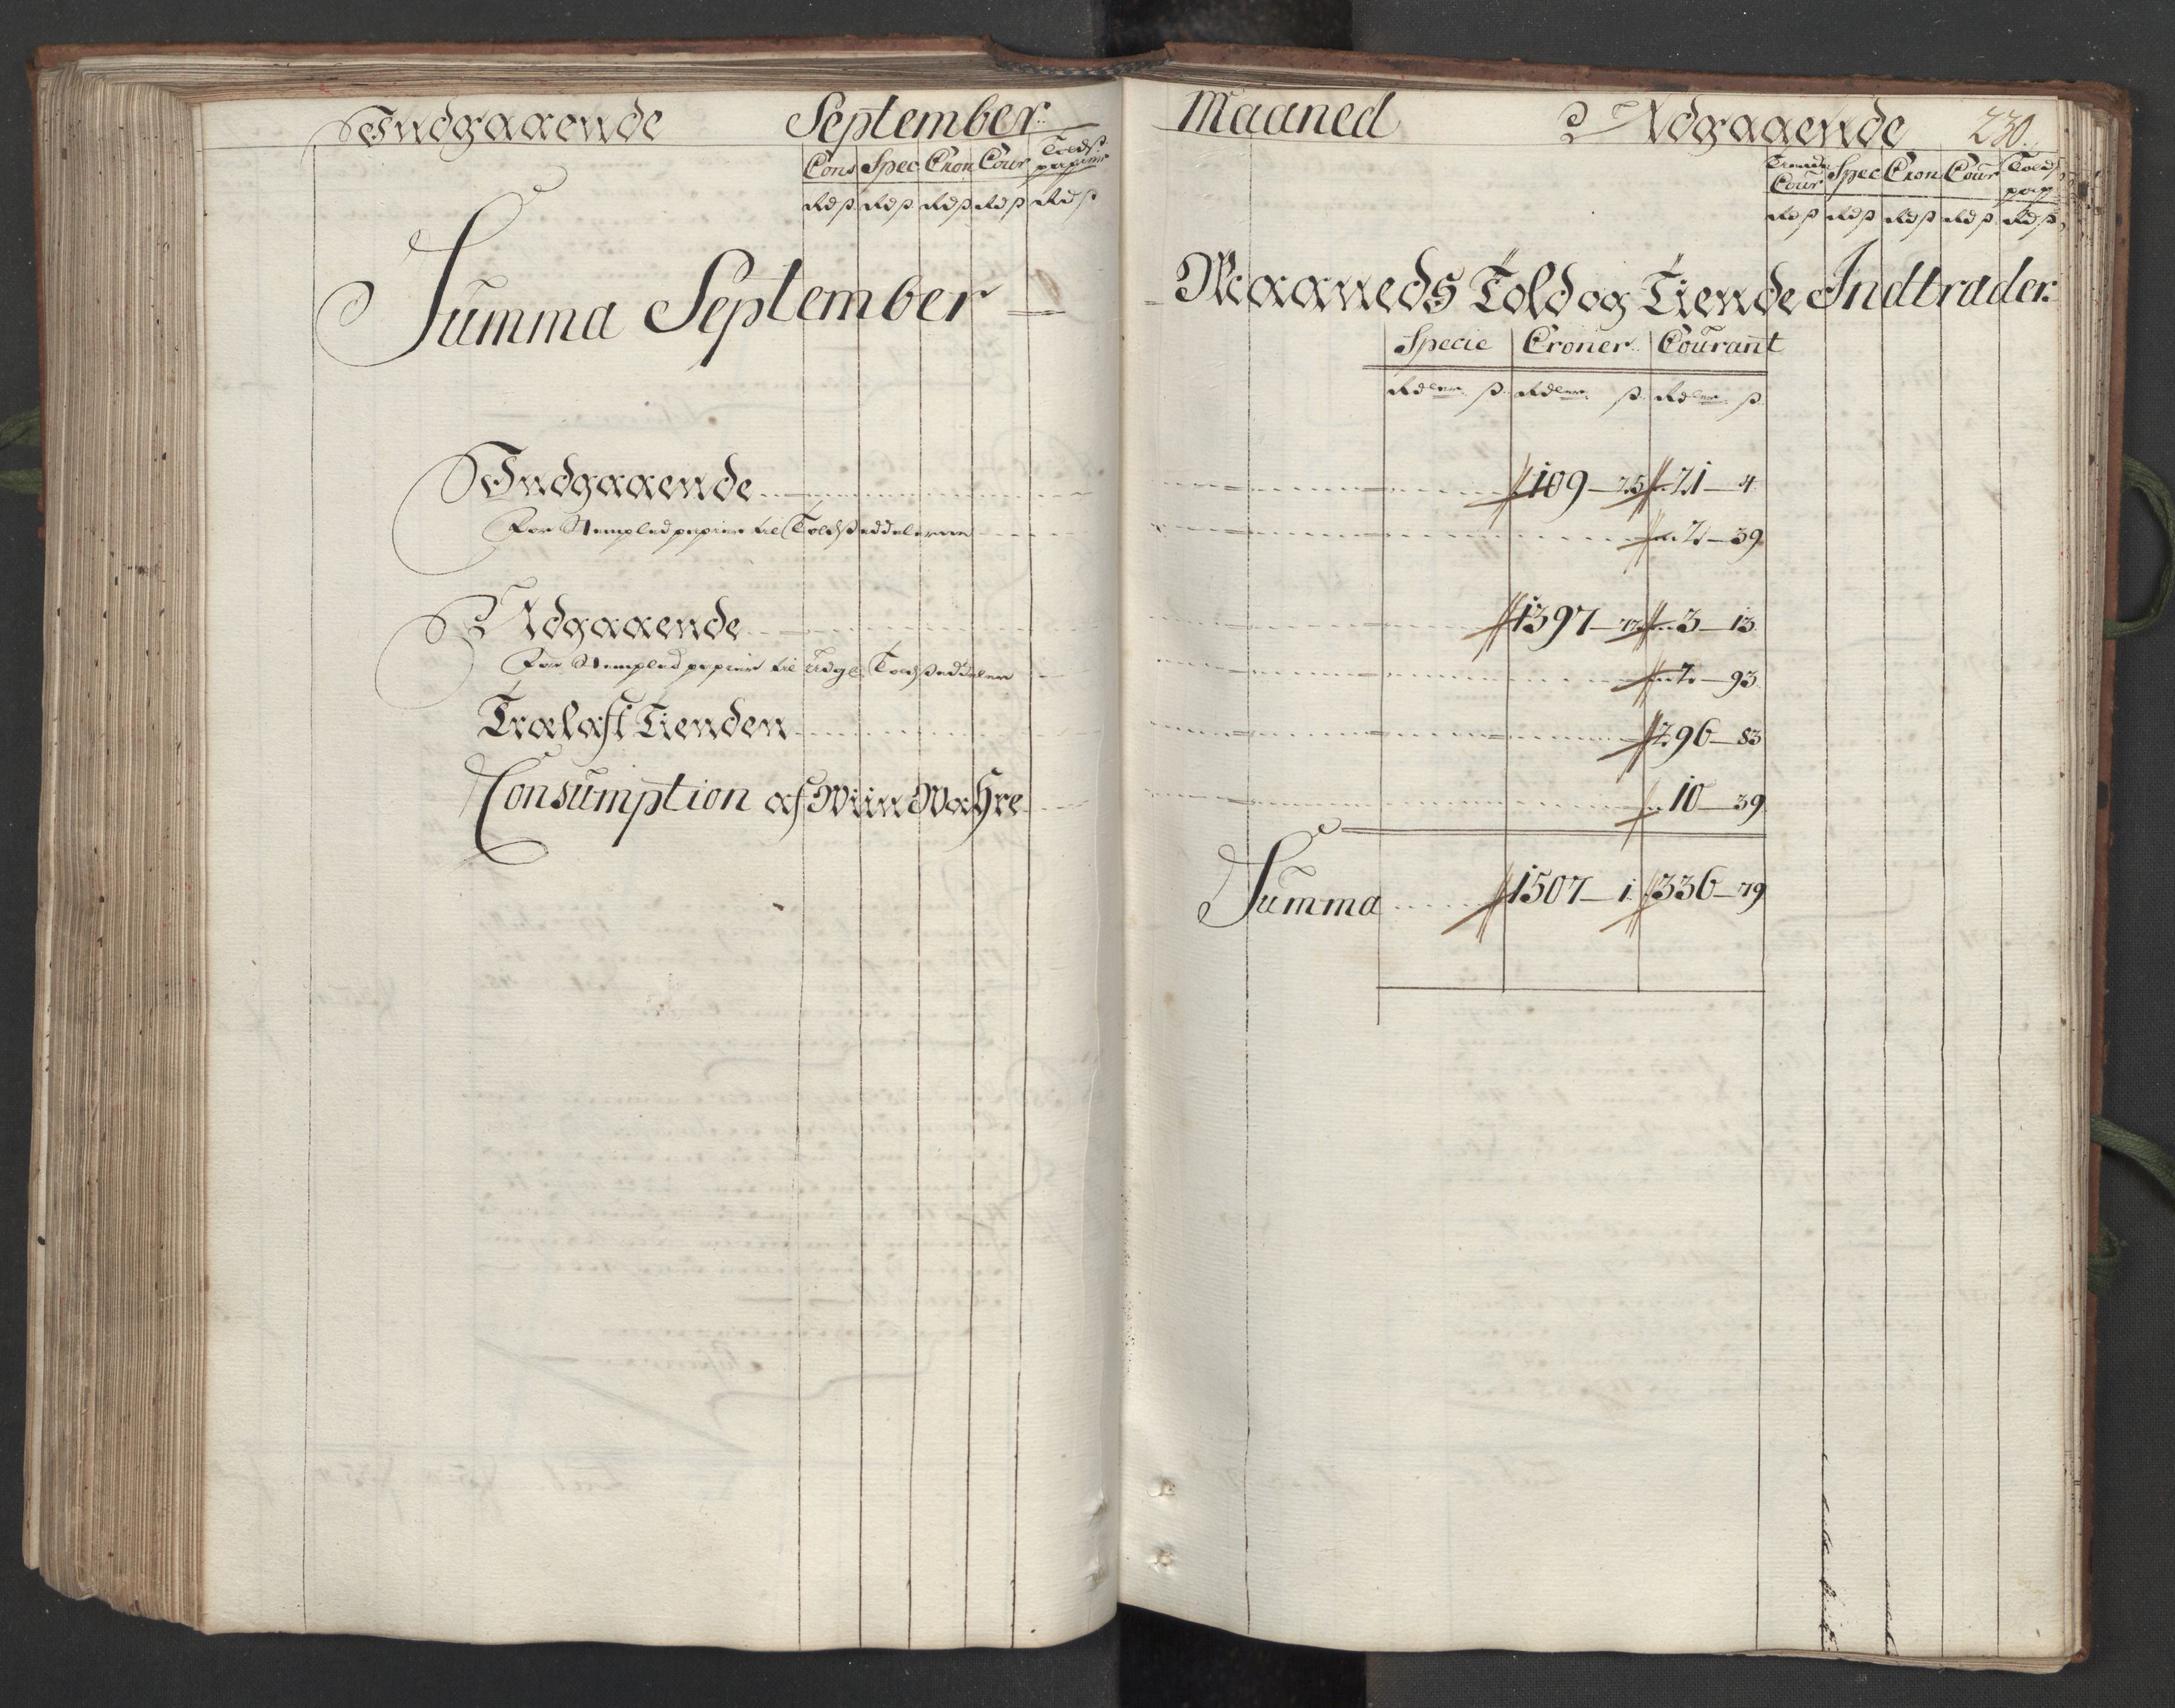 Indgaaende September Maaned Udgaaende 230.
Cons Spec Cron Cour Tolds papiir
Rd ß Rd ß Rd ß Rd ß Rd ß
Tiende Cour Spec Cron Cour Tolds pap
Rd ß Rd ß Rd ß Rd ß Rd ß
Summa September Maaneds Told og Tiende Indtrader.
Specie Croner Courant
Rdler ß Rdler ß Rdler ß
Indgaaende 109 – 25 21 – 4
For Stempled papiir til Toldseddelerne 2 – 39
Udgaaende 1397 – 72 3 – 13
For Stempled papiir til Udg: Toldseddeler 2 – 93
Trælast Tienden 296 – 83
Consumption af Wiin Wahre 10 – 39
Summa 1507 – 1 336 – 79